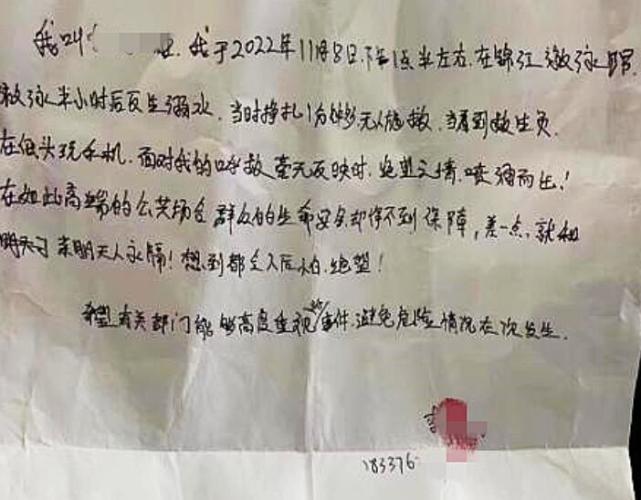 我叫 我于2022年11月8日.下午1点半左右.在锦江游泳馆
游泳半小时后发生溺水.当时挣扎1分多钟无人施救.当看到救生员
在低头玩手机.面对我的呼救毫无反映时.绝望之情.喷涌而出!
在如此高端的公共场合群众的生命安全却得不到保障,差一点,就和
亲朋天人永隔!想到都会后怕.绝望!
希望有关部门能够高度重视此事件.避免危险情况在次发生.
183376